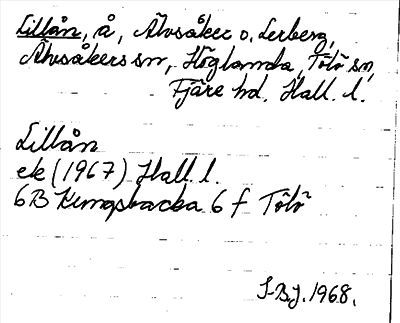 Lillån, å, Älvsåker o. Lerberg,
Älvsåkers sn, Höglanda, Tölö sn,
Fjäre hd. Hall. l.
Lillån
ek (1967) Hall. l.
6B Kungsbacka 6 f Tölö
S-B.J. 1968.